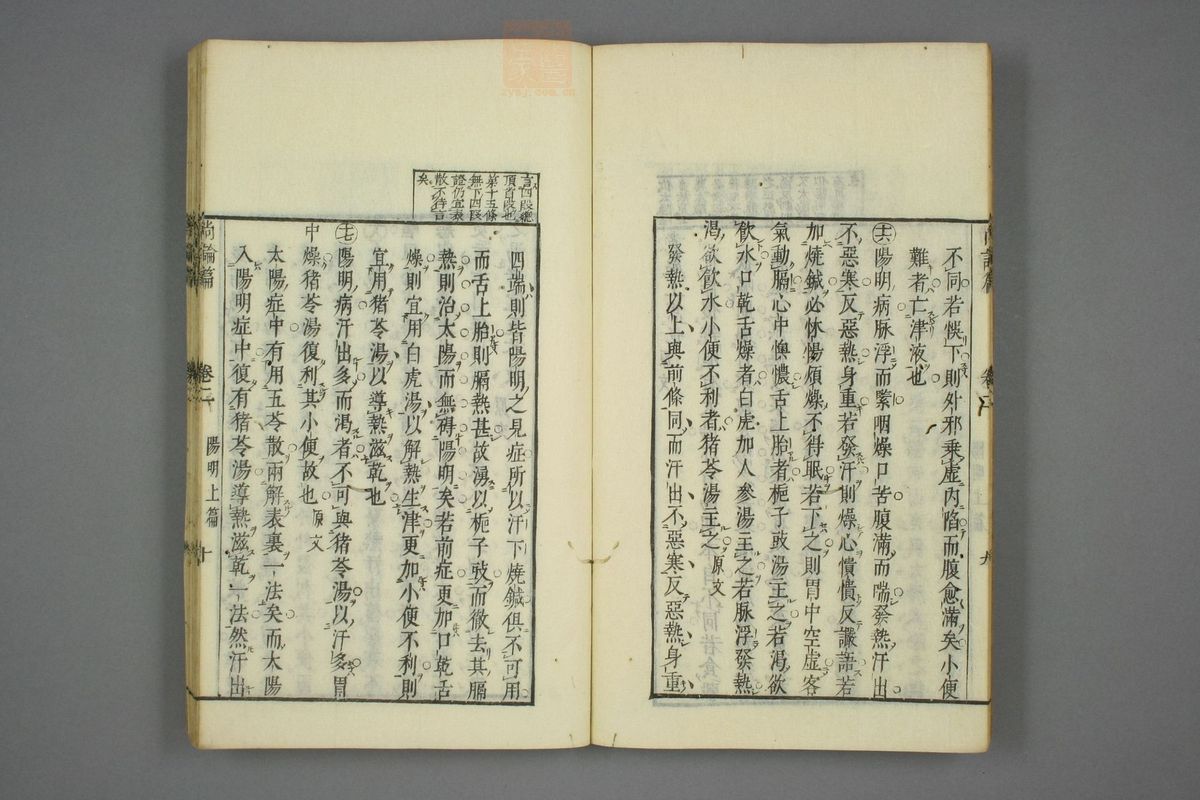 不同若悞下則外邪乗虚内陷而腹愈滿矣小便
難者亡津液也
〸六陽明病脉浮而緊咽燥口苦腹滿而喘發熱汗出
不惡寒反惡熱身重若發汗則燥心憒憒反讝語若
加燒鍼必怵惕煩燥不得眠若下之則胃中空虚客
氣動膈心中懊憹舌上胎者梔子豉湯主之若渴欲
飲水口乾舌燥者白虎加人參湯主之若脉浮發熱
渴欲飲水小便不利者猪苓湯主之原文
發熱以上與前條同而汗出不惡寒反惡熱身重
卷二
九
言四段總
頂首段也
第十五條
無下四段
證仍宜表
散不待言
矣
四端則皆陽明之見症所以汗下燒鍼俱不可用
而舌上胎則膈熱甚故湧以梔子豉而微去其膈
熱則治太陽而無碍陽明矣若前症更加口乾舌
燥則宜用白虎湯以解熱生津更加小便不利則
宜用猪苓湯以導熱滋乾也
〸七陽明病汗出多而渴者不可與猪苓湯以汗多胃
中燥猪苓湯復利其小便故也原文
太陽症中有用五苓散兩解表裏一法矣而太陽
入陽明症中復有猪苓湯導熱滋乾一法然汗出
尚論篇
卷二
陽明上篇
十
zysj.com.cn